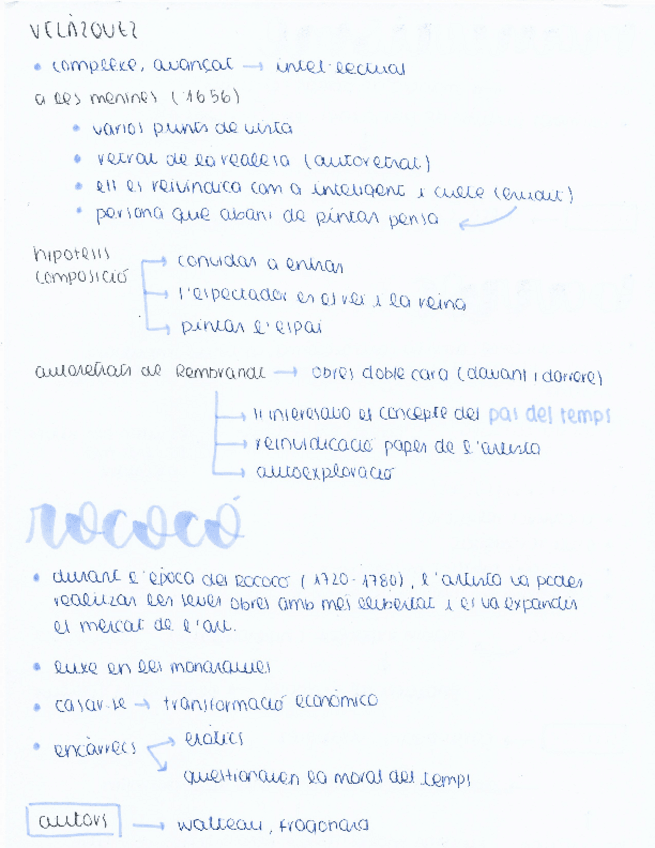 VELÀZQUEZ
• complexe, avançat → intel·lectual
a les menines (1656)
• varios punts de vista
• retrat de la realesa (autoretrat)
• ell es reivindica com a inteligent i culte (erudit)
• persona que abans de pintar pensa
hipotesis composició
→ convidar a entrar
→ l'espectador es el rei i la reina
→ pintar l'espai
autoretrats de Rembrandt → obres doble cara (davant i darrere)
→ li interesava el concepte del pas del temps
→ reinvidicació paper de l'artista
→ autoexploració
rococó
• durant l'època del Rococó (1720-1780), l'artista va poder
realitzar les seves obres amb més llibertat i es va expandir
el mercat de l'art.
• luxe en les monarquies
• casar-se → transformació econòmica
• encàrrecs → eròtics
→ questionaven la moral del temps
autors → watteau, fragonard